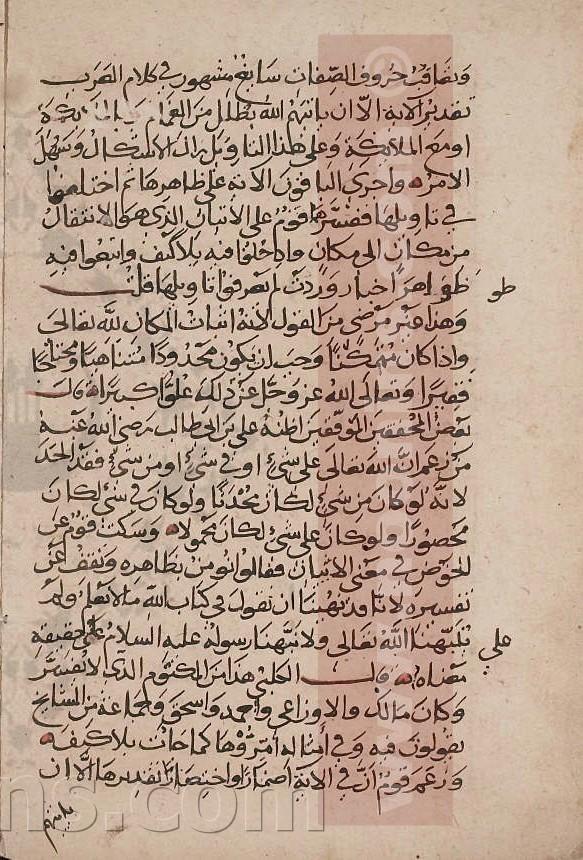 وتعاقب حروف الصفات سايغ مشهور في كلام العرب
تقدير الاية الا ان ياتيهم الله بظلل من الغمام
او مع الملايكة وعلى هذا التاويل زال الاشكال وسهل
الامر واجرى الباقون الاية على ظاهرها ثم اختلفوا
في تاويلها ففسرها قوم على الاتيان الذي هو الانتقال
من مكان الى مكان وادخلوا فيه بلا كيف واتبعوا فيه
ظواهر اخبار وردت لم يعرفوا تاويلها قلت
طو
وهذا غير مرضي من القول لانه اثبات المكان لله تعالى
واذا كان متمكنا وجب ان يكون محدودا متناهيا ومحتاجا
فقيرا وتعالى الله عز وجل عن ذلك علوا كبيرا وقال
بعض المحققين الموفقين اظنه علي بن ابي طالب رضي الله عنه
من زعم ان الله تعالى على شئ او في شئ او من شئ فقد الحد
لانه لو كان من شئ لكان محدثا ولو كان في شئ لكان
محصورا ولو كان على شئ لكان محمولا وسكت قوم عن
الخوض في معنى الاتيان فقالوا نومن بظاهره ونقف عن
تفسيره لانا قد نهينا ان نقول في كتاب الله ما لا نعلم ولم
ينبهنا الله تعالى ولا نبهنا رسوله عليه السلام على حقيقة
علي
معناه قال الكلبي هذا من المكتوم الذي لا يفسر
وكان مالك والاوزاعي واحمد واسحق وجماعة من المشايخ
يقولون فيه وفي امثاله امروها كما جات بلا كيف
وزعم قوم ان في الاية اضمارا واختصارا تقديرها الا ان
ياتيهم
ns.com